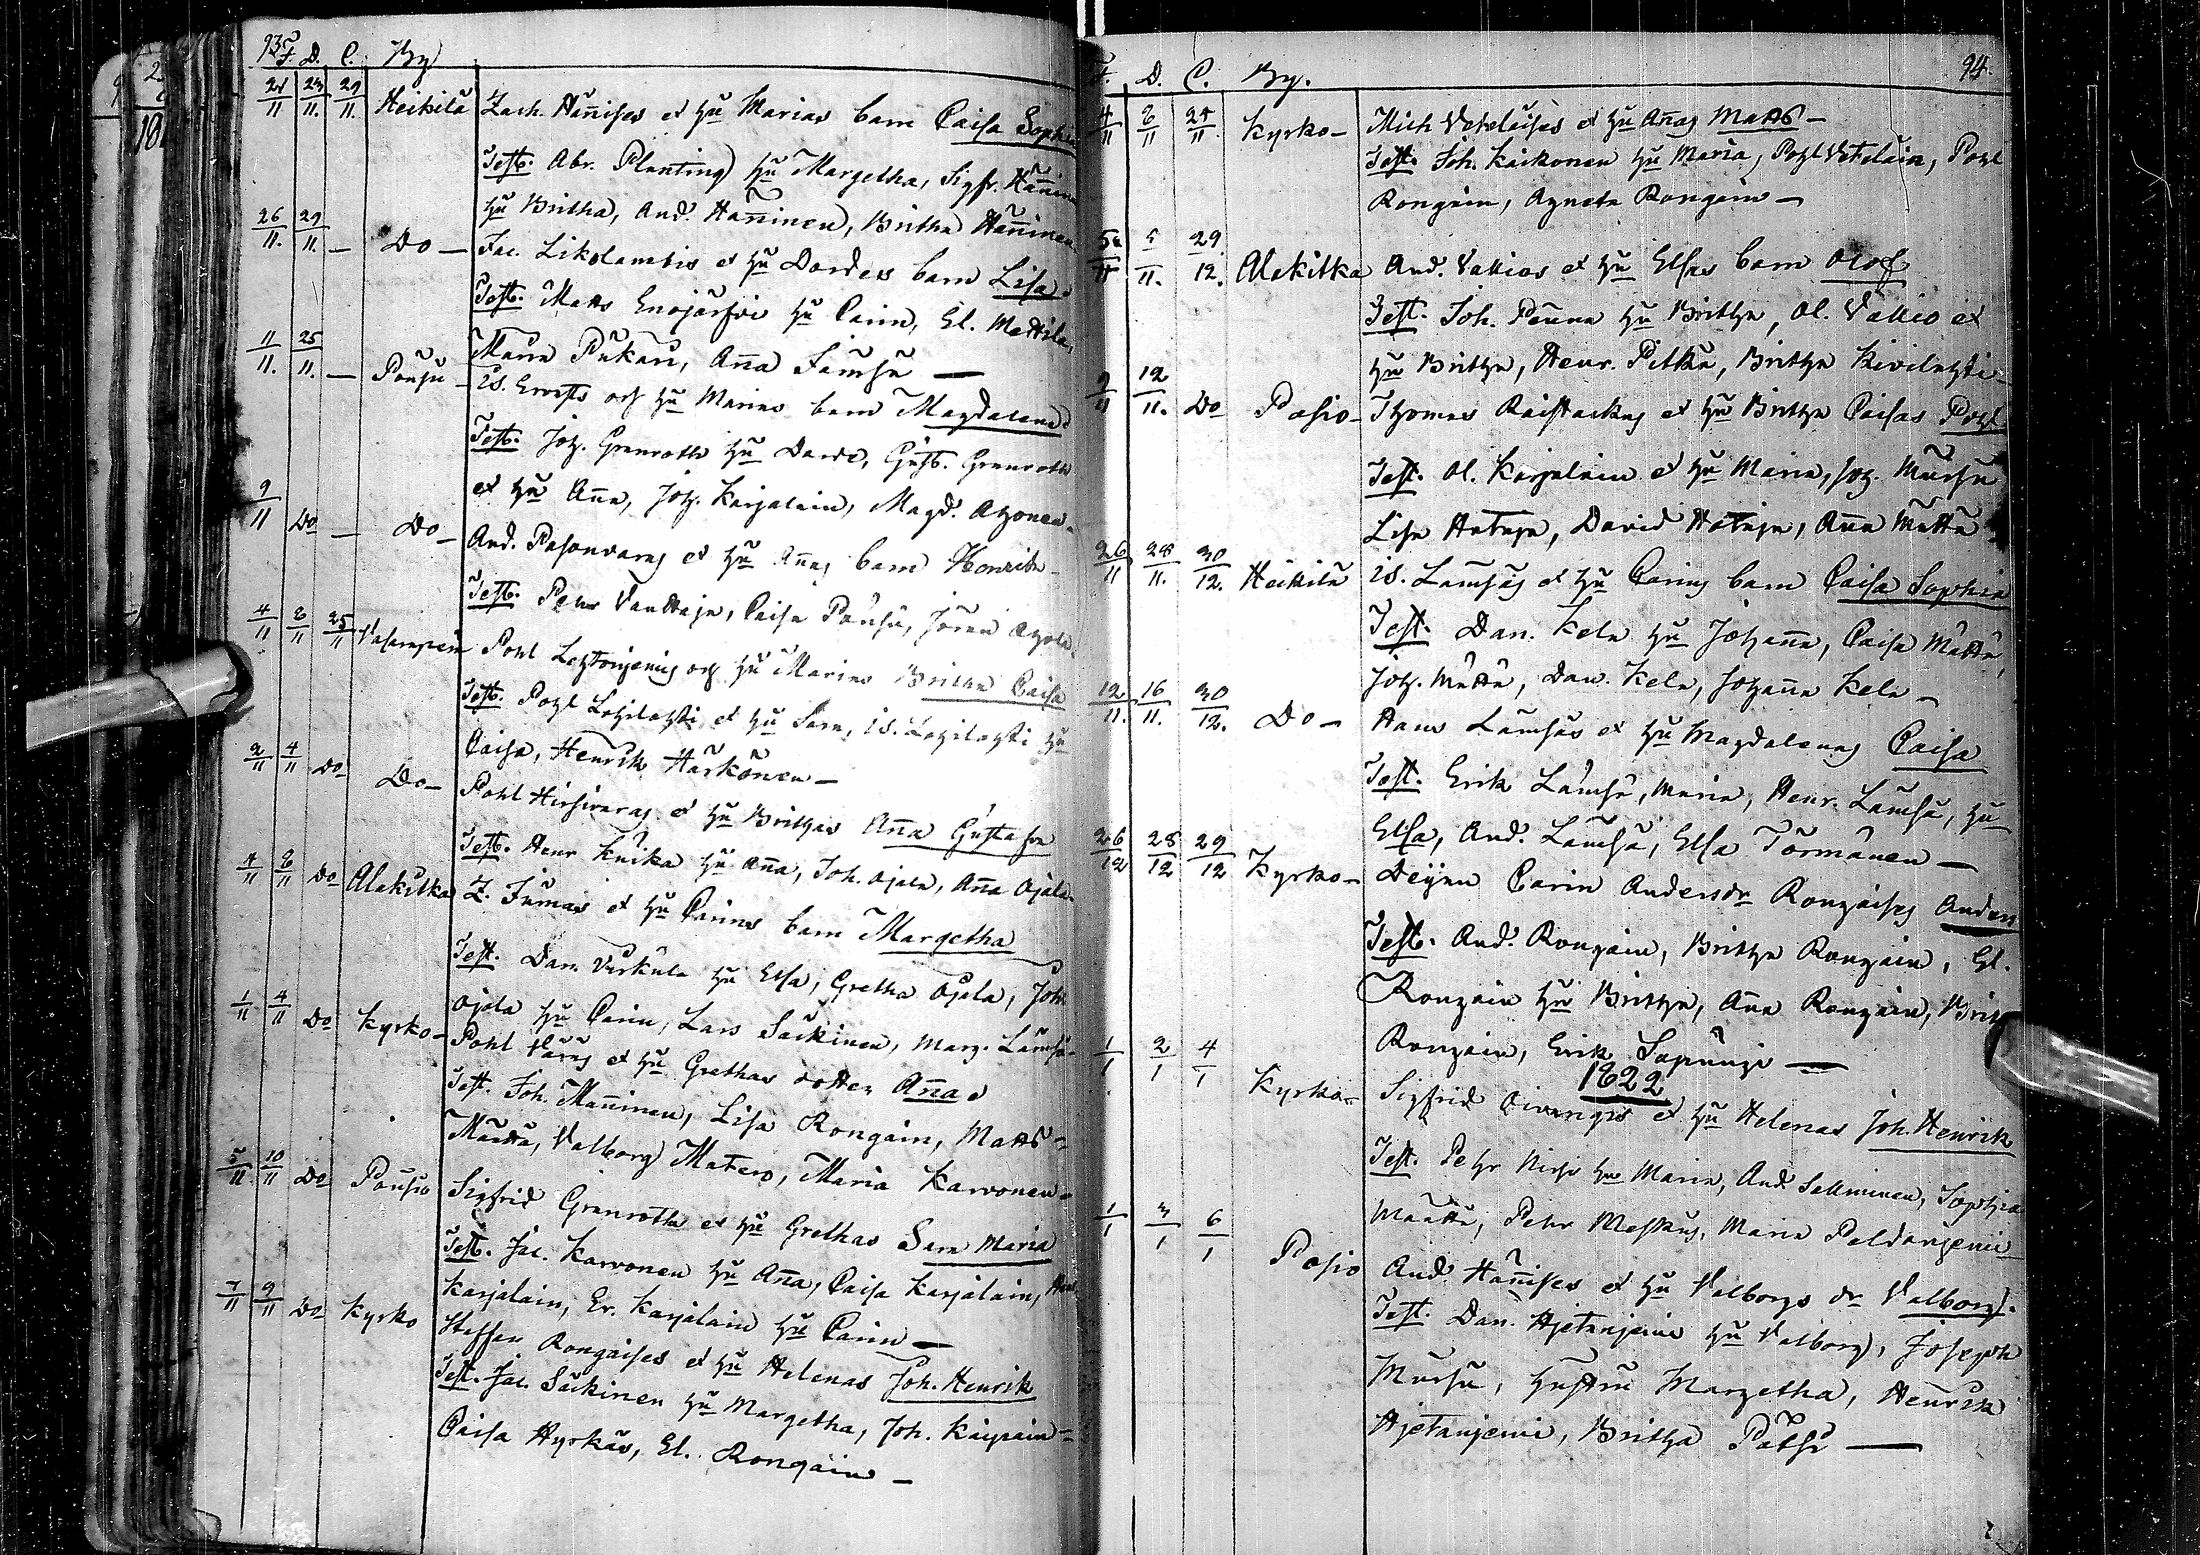 93. F. D. C. By
21/11 23/11. 29/11. Heikilä Zach. Hänises et hu Marias barn Caisa Sophia
Test. Abr. Planting hu Margetha, Sigfr. Häninen
hu Britha, And. Häninen, Britha Häninen
26/11. 29/11. — Do — Jac. Likolambis et hu Dordes barn Lisa
Test. Matts Enojärfvi hu Carin, El. Mattila,
Maria Pukari, Aña Lämsä —
11/11. 25/11. — Pousu — Is. Ernsts och hu Marias barn Magdalena
Test. Joh. Granroth hu Darde, Gust. Granroth
et hu Aña, Joh. Karjalain, Magd. Ahonen
9/11 Do — Do — And. Pasonvaras et hu Añas barn Henrik
Test. Pehr Vanttaja, Caisa Pousu, Jöran Ahola
4/11 8/11 25/11 Pohl Lehtoniemis och hu Marias Britha Caisa
Test. Pohl Lohilahti et hu Sara, Is. Lohilahti hu
Caisa, Henrik Härkönen —
2/11 4/11 Do Do — Pohl Hirsivaras et hu Brithas Aña Gustafva
Test. Henr Kuika hu Aña, Joh. Ojala, Aña Ojala
4/11 8/11 Do Alakitka Z. Jumas et hu Carins barn Margetha
Test. Dan. Virkula hu Elsa, Gretha Ojala, Joh.
Ojala hu Carin, Lars Säkkinen, Marg. Lämsä
1/11 4/11 Do Kyrko — Pohl et hu Grethas dotter Aña
Test. Joh. Mañinen, Lisa Rongain, Matts
Määttä, Valborg Matero, Maria Karvonen
5/11 10/11 Do Pousu Sigfrid Granroths et hu Grethas Sara Maria
Test. Jac. Karvonen hu Aña, Caisa Karjalain,
Karjalain, Er. Karjalain hu Carin —
7/11 9/11 Do Kyrko Staffan Rongaises et hu Helenas Joh. Henrik
Test. Jac. Säkinen hu Margetha, Joh. Kaipain
Caisa Hyrkäs, El. Rongain —
F. D. C. By. 94.
4/11 8/11 25/11 Kyrko — Mich Veteläises et hu Añas Matts —
Test. Joh. Kaikonen hu Maria, Pohl Vetelain, Pohl
Rongain, Agneta Rongain —
5/11 5/11. 29/12. Alakitka And. Vallios et hu Elsas barn Olof
Test. Joh. Peuna hu Britha, Ol. Vallio et
hu Britha, Henr. Pitkä, Britha Kivilahti
9/11 12/11. Do Posio — Thomas Raistackas et hu Britha Caisas Pohl
Test. Ol. Karjalain et hu Maria, Joh. Mursu
Lisa Hataja, David Hataja, Aña Määttä
26/11 28/11. 30/12. Heikilä Is. Lämsäs et hu Carins barn Caisa Sophia
Test. Dan. Kela hu Johaña, Caisa Määttä,
Joh. Määttä, Dan. Kela, Johaña Kela —
12/11. 16/11. 30/12. Do — Hans Lämsäs et hu Magdalenas Caisa
Test. Erik Lämsä, Maria, Henr. Lämsä, hu
Elsa, And. Lämsä, Elsa Törmänen —
26/12 28/12 29/12 Kyrko — Deijan Carin Andersdr Rongaises Anders
Test. And. Rongain, Britha Rongain, El.
Rongain hu Britha, Aña Rongain, Brit
Rongain, Erik —
1822
1/1 2/1 4/1 Kyrko — Sigfrid Oivangis et hu Helenas Joh. Henrik
Test. Pehr hu Maria, And. Sallminen, Sophia
Määttä, Pehr Meskus, Maria Paldaniemi
1/1 3/1 6/1 Posio And. Hänises et hu Valborgs dr Valborg.
Test. Dan. Hjetaniemi hu Valborg, Joseph
Mursu, hustru Margetha, Henrik
Hjetaniemi, Britha Pätsi —